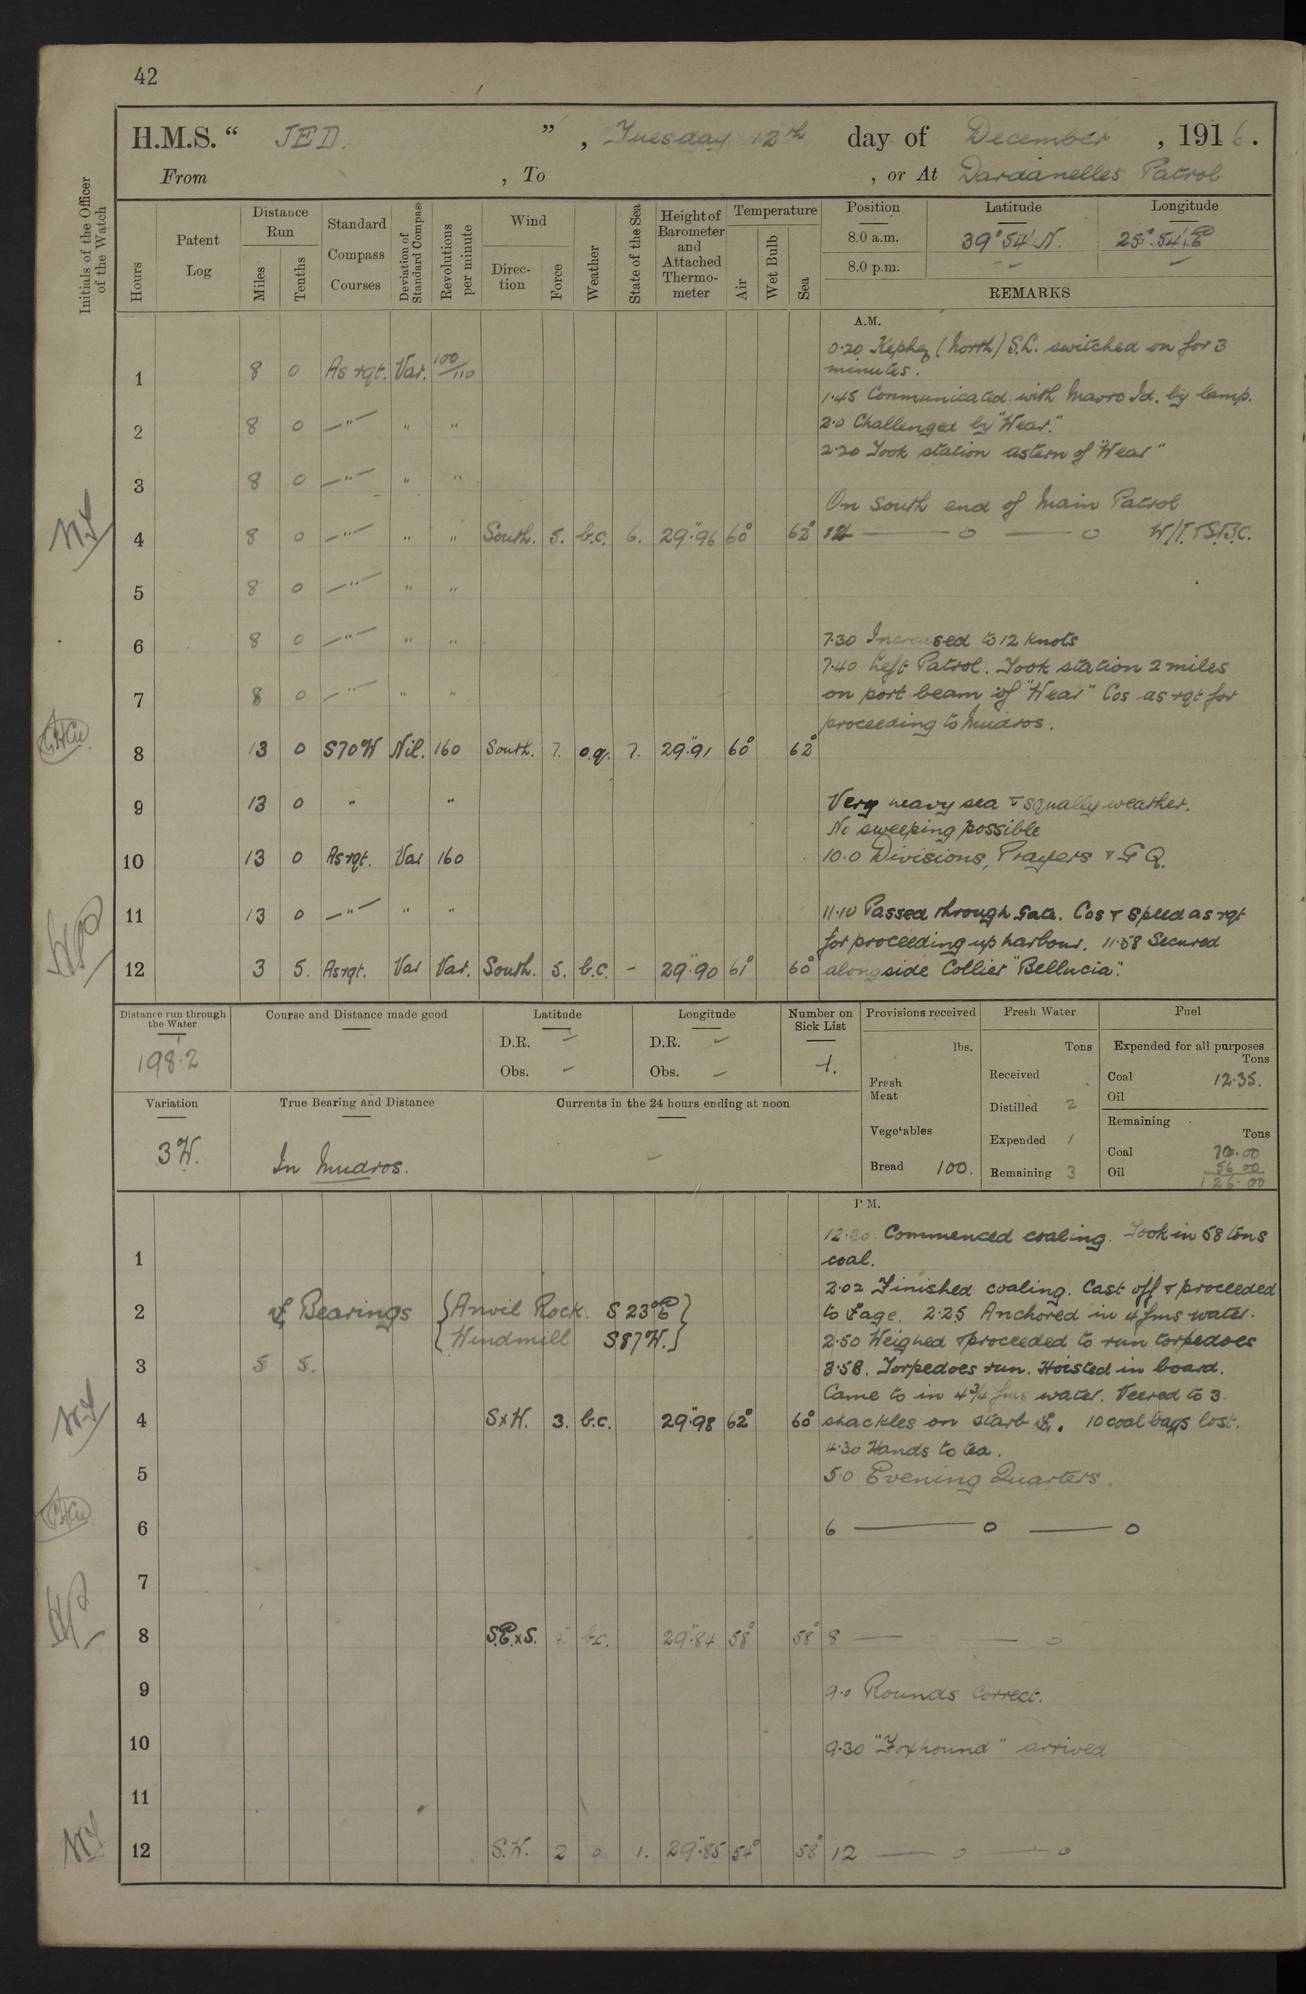 42
H.M.S. “ JED. ”, Tuesday 12th day of December, 1916.
From , To , or At Dardanelles Patrol
Initials of the Officer of the Watch
Hours
Patent Log
Distance Run
Miles Tenths
Standard Compass Courses
Deviation of Standard Compass
Revolutions per minute
Wind
Direction Force
Weather
State of the Sea
Height of Barometer and Attached Thermometer
Temperature
Air Wet Bulb Sea
Position Latitude Longitude
8.0 a.m. 39° 54' N. 25° 54' E
8.0 p.m. — —
REMARKS
A.M.
0.20 Kephez (North) S.L. switched on for 3
1 8 0 As rqt. Var. 100/110 minutes.
1.45 Communicated with Mavro Id. by lamp.
2 8 0 —"— " " 2.0 Challenged by "Wear."
2.20 Took station astern of "Wear"
3 8 0 —"— " "
On South end of Main Patrol
4 8 0 —"— " " South. 5. b.c. 6. 29".96 60° 62° 4 — o — o W/T. & S.B.C.
5 8 0 —"— " "
6 8 0 —"— " " 7.30 Increased to 12 knots
7.40 Left Patrol. Took station 2 miles
7 8 0 —"— " " on port beam of "Wear" Cos as rqt for
proceeding to Mudros.
8 13 0 S70W Nil. 160 South. 7. o.q. 7. 29".91 60° 62°
9 13 0 " " Very heavy sea & squally weather.
No sweeping possible
10 13 0 As rqt. Var 160 10.0 Divisions, Prayers & G Q.
11 13 0 —"— " " 11.10 Passed through Gate. Cos & Speed as rqt
for proceeding up harbour. 11.58 Secured
12 3 5. As rqt. Var Var. South. 5. b.c. - 29".90 61° 60° alongside Collier "Bellucia".
Distance run through the Water
198.2
Course and Distance made good
Latitude
D.R. —
Obs. —
Longitude
D.R. —
Obs. —
Number on Sick List
1.
Provisions received
lbs.
Fresh Meat
Vegetables
Bread 100.
Fresh Water
Tons
Received
Distilled 2
Expended 1
Remaining 3
Fuel
Expended for all purposes
Tons
Coal 12.35.
Oil
Remaining
Tons
Coal 70.00
56 00
Oil 126.00
Variation
3W.
True Bearing and Distance
In Mudros.
Currents in the 24 hours ending at noon
—
P.M.
12.30 Commenced coaling. Took in 58 tons
1 coal.
2.02 Finished coaling. Cast off & proceeded
2 Bearings {Anvil Rock. S 23° E} to 2.25 Anchored in 4 fms water.
{Windmill S 87 W.} 2.50 Weighed & proceeded to run torpedoes
3 5 5. 3.58. Torpedoes run. Hoisted in board.
Came to in 4¾ fms water. Veered to 3
4 SxW. 3. b.c. 29".98 62° 60° shackles on starb 10 coal bags lost.
4.30 Hands to tea.
5 5.0 Evening Quarters.
6 6 — o — o
7
8 S.E.xS. 4. b.c. 29".84 58° 58° 8 — — o
9 9.0 Rounds correct.
10 9.30 "Foxhound" arrived
11
12 S.W. 2 o 1. 29".85 54° 58° 12 — o — o